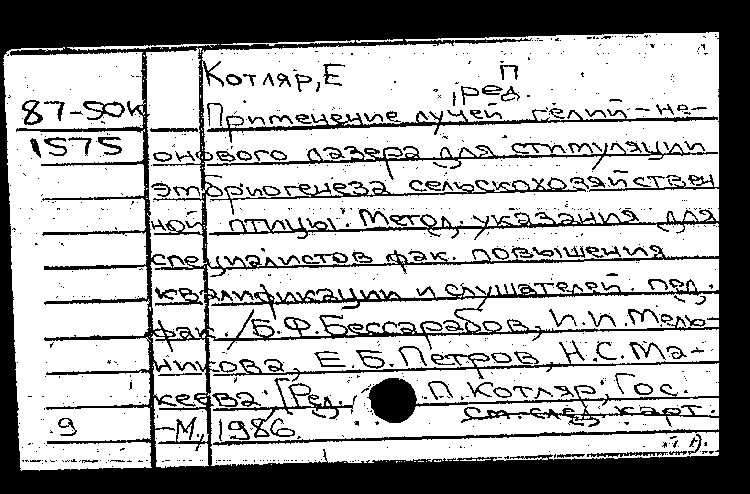 Котляр, Е П
, ред.
87-50к Применение лучей гелий-не-
1575 онового лазера для стимуляции
эмбриогенеза сельскохозяйствен
ной птицы: Метод. указания для
специалистов фак. повышения
квалификации и слушателей пед.
фак. / Б.Ф.Бессарабов, И.И.Мель-
никова, Е.Б.Петров, Н.С.Ма-
кеева; [Ред. .П.Котляр; Гос.
см. след. карт.
9 -М., 1986.